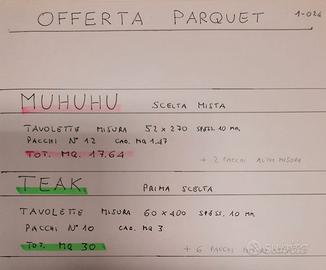 OFFERTA PARQUET 1-024
MUHUHU SCELTA MISTA
TAVOLETTE MISURA 52 x 270 SPESS. 10 MM.
PACCHI N° 12 CAD. MQ 1.47
TOT. MQ. 17.64 + 2 PACCHI ALTRA MISURA
TEAK PRIMA SCELTA
TAVOLETTE MISURA 60 x 400 SPESS. 10 MM.
PACCHI N° 10 CAD. MQ 3
TOT. MQ 30 + 6 PACCHI